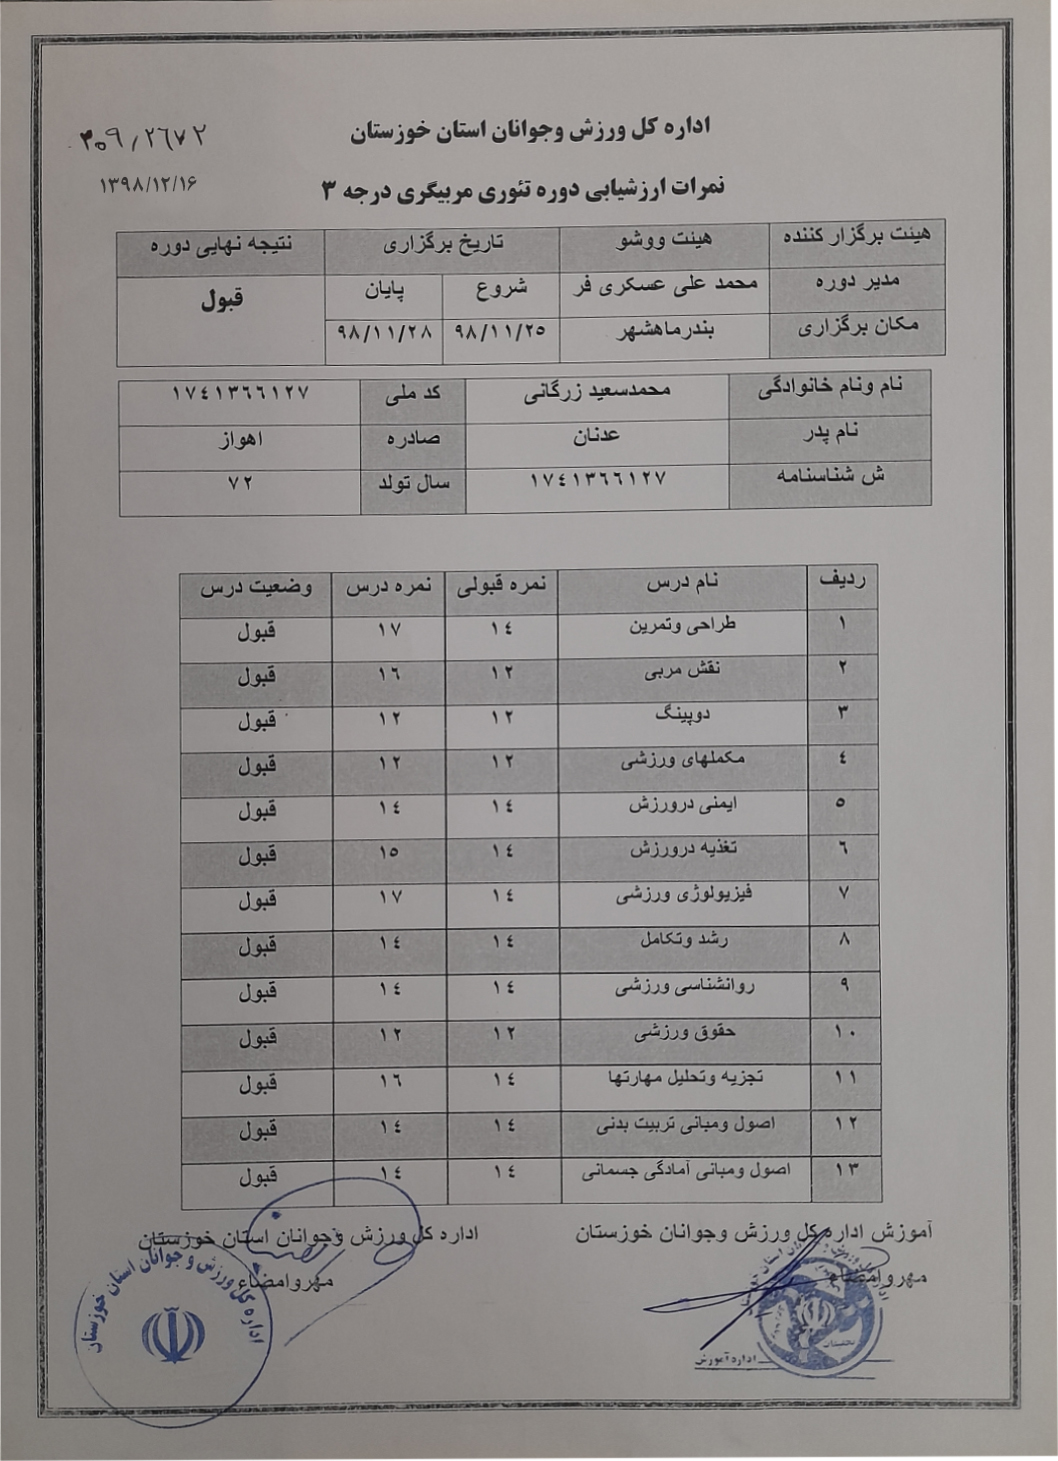 اداره کل ورزش وجوانان استان خوزستان
۳۰۹/۲۶۷۲
نمرات ارزشیابی دوره تئوری مربیگری درجه ۳
۱۳۹۸/۱۲/۱۶
هیئت برگزار کننده هیئت ووشو تاریخ برگزاری نتیجه نهایی دوره
مدیر دوره محمد علی عسکری فر شروع پایان قبول
مکان برگزاری بندرماهشهر ۹۸/۱۱/۲۵ ۹۸/۱۱/۲۸
نام ونام خانوادگی محمدسعید زرگانی کد ملی ۱۷٤۱۳٦٦۱۲۷
نام پدر عدنان صادره اهواز
ش شناسنامه ۱۷٤۱۳٦٦۱۲۷ سال تولد ۷۲
ردیف نام درس نمره قبولی نمره درس وضعیت درس
۱ طراحی وتمرین ۱٤ ۱۷ قبول
۲ نقش مربی ۱۲ ۱٦ قبول
۳ دوپینگ ۱۲ ۱۲ قبول
٤ مکملهای ورزشی ۱۲ ۱۲ قبول
۵ ایمنی درورزش ۱٤ ۱٤ قبول
٦ تغذیه درورزش ۱٤ ۱۵ قبول
۷ فیزیولوژی ورزشی ۱٤ ۱۷ قبول
۸ رشد وتکامل ۱٤ ۱٤ قبول
۹ روانشناسی ورزشی ۱٤ ۱٤ قبول
۱۰ حقوق ورزشی ۱۲ ۱۲ قبول
۱۱ تجزیه وتحلیل مهارتها ۱٤ ۱٦ قبول
۱۲ اصول ومبانی تربیت بدنی ۱٤ ۱٤ قبول
۱۳ اصول ومبانی آمادگی جسمانی ۱٤ ۱٤ قبول
آموزش اداره کل ورزش وجوانان خوزستان
مهروامضاء
اداره آموزش
اداره کل ورزش وجوانان استان خوزستان
مهروامضاء
اداره کل ورزش و جوانان استان خوزستان